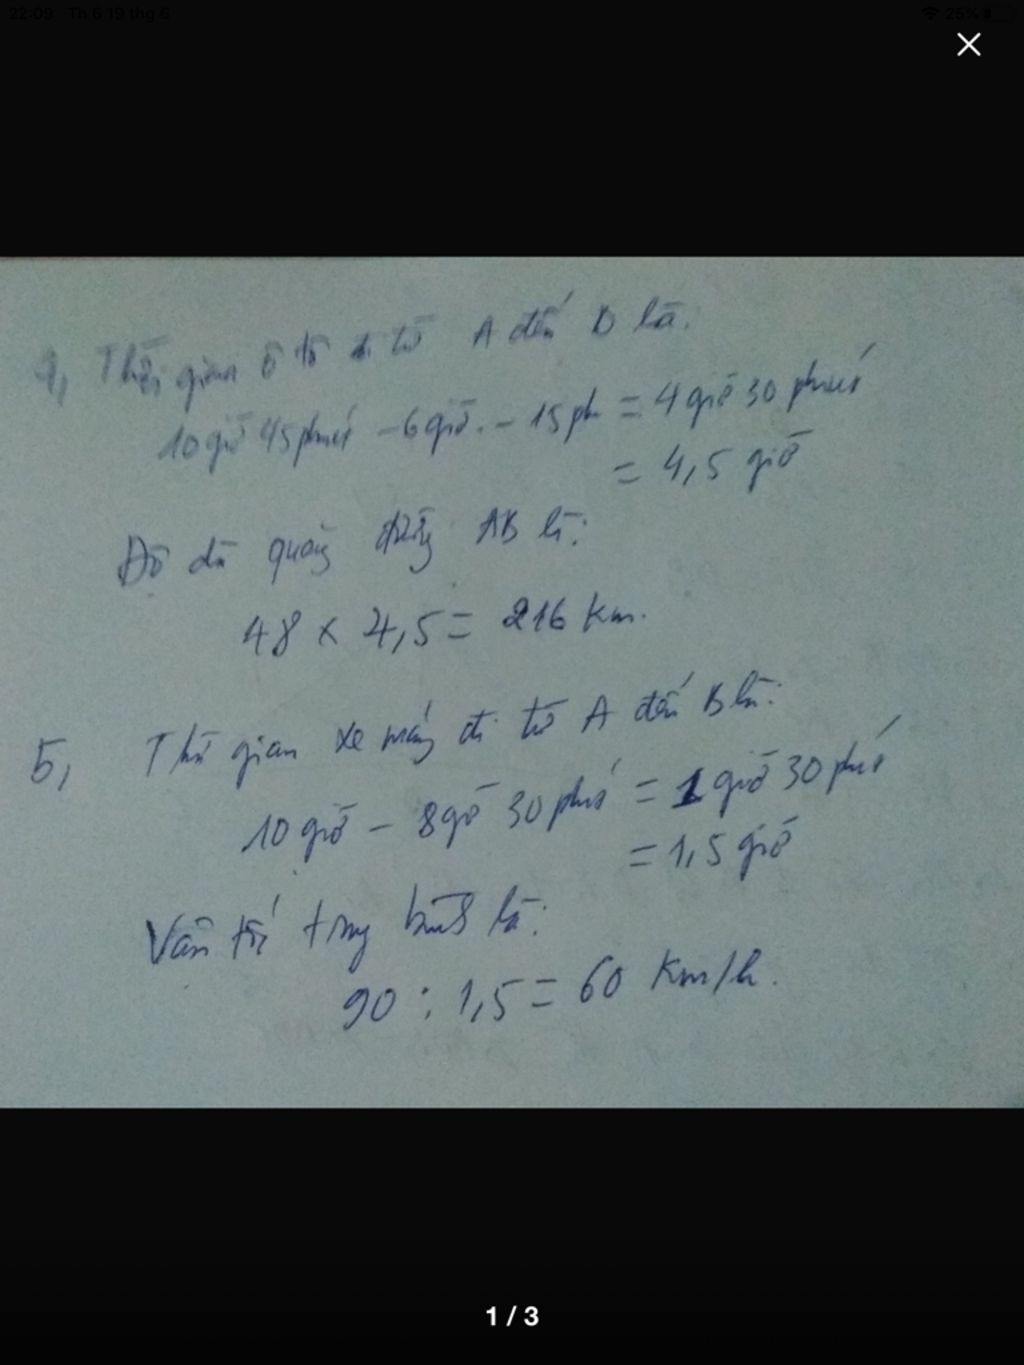 22:09 Th 6 19 thg 6
25%
4, Thời gian ô tô đi từ A đến B là:
10 giờ 45 phút - 6 giờ - 15 ph = 4 giờ 30 phút
= 4,5 giờ
Độ dài quãng đường AB là:
48 x 4,5 = 216 km.
5, Thời gian xe máy đi từ A đến B là:
10 giờ - 8 giờ 30 phút = 1 giờ 30 phút
= 1,5 giờ
Vận tốc trung bình là:
90 : 1,5 = 60 km/h.
1 / 3